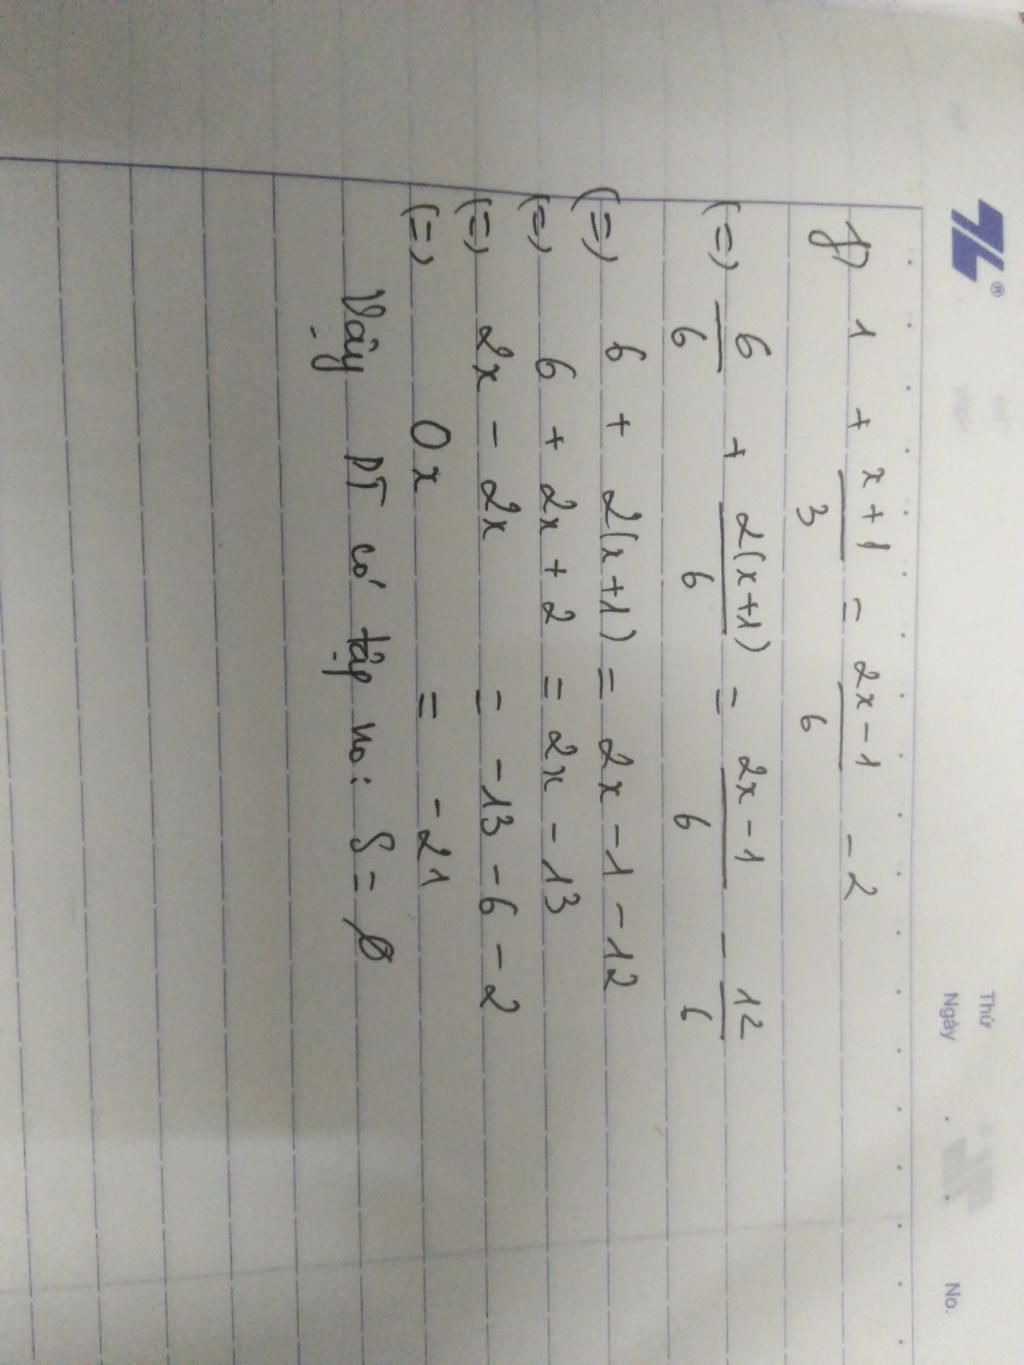 Thứ
Ngày . . No.
f) 1 + x+1/3 = 2x-1/6 - 2
(=) 6/6 + 2(x+1)/6 = 2x-1/6 - 12/6
(=) 6 + 2(x+1) = 2x - 1 - 12
(=) 6 + 2x + 2 = 2x - 13
(=) 2x - 2x = -13 - 6 - 2
(=) 0x = -21
Vậy PT có tập no: S = ∅